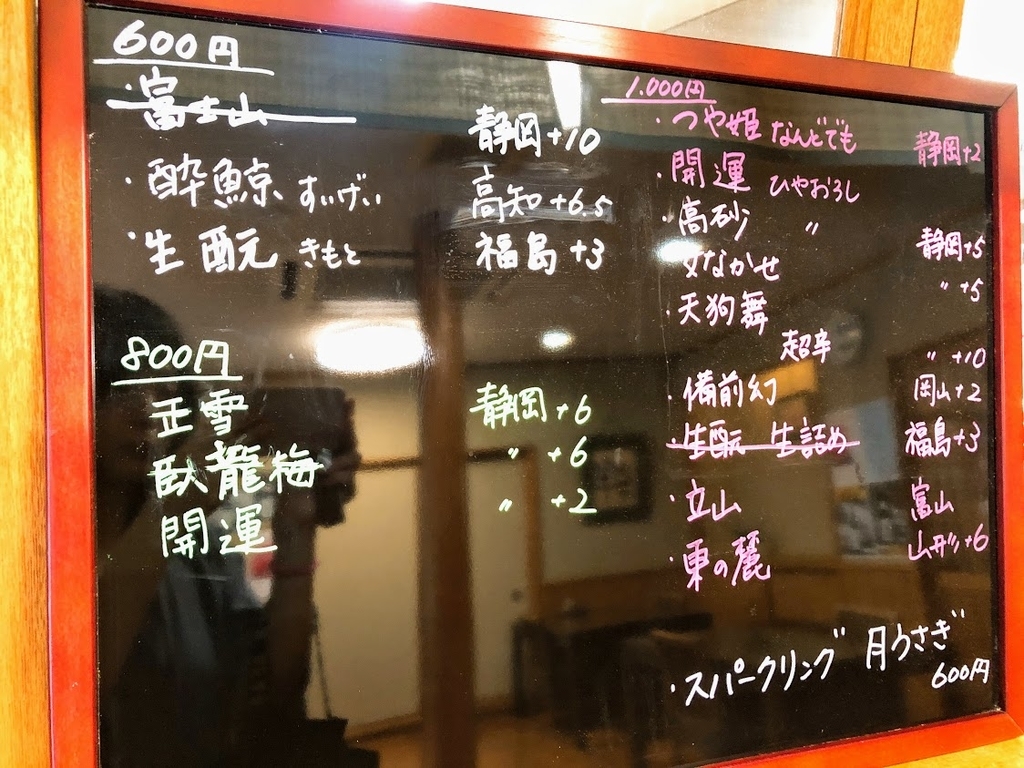 600円
富士山 静岡+10
・酔鯨 すいげい 高知+6.5
・生酛 きもと 福島+3
800円
正雪 静岡+6
臥龍梅 〃 +6
開運 〃 +2
1.000円
・つや姫 なんどでも
・開運 ひやおろし 静岡+2
・高砂 〃 静岡+5
・女なかせ 〃 +5
・天狗舞
超辛 〃 +10
・備前幻 岡山+2
・生酛 生詰め 福島+3
・立山 富山
・東の麓 山形+6
・スパークリング 月うさぎ
600円